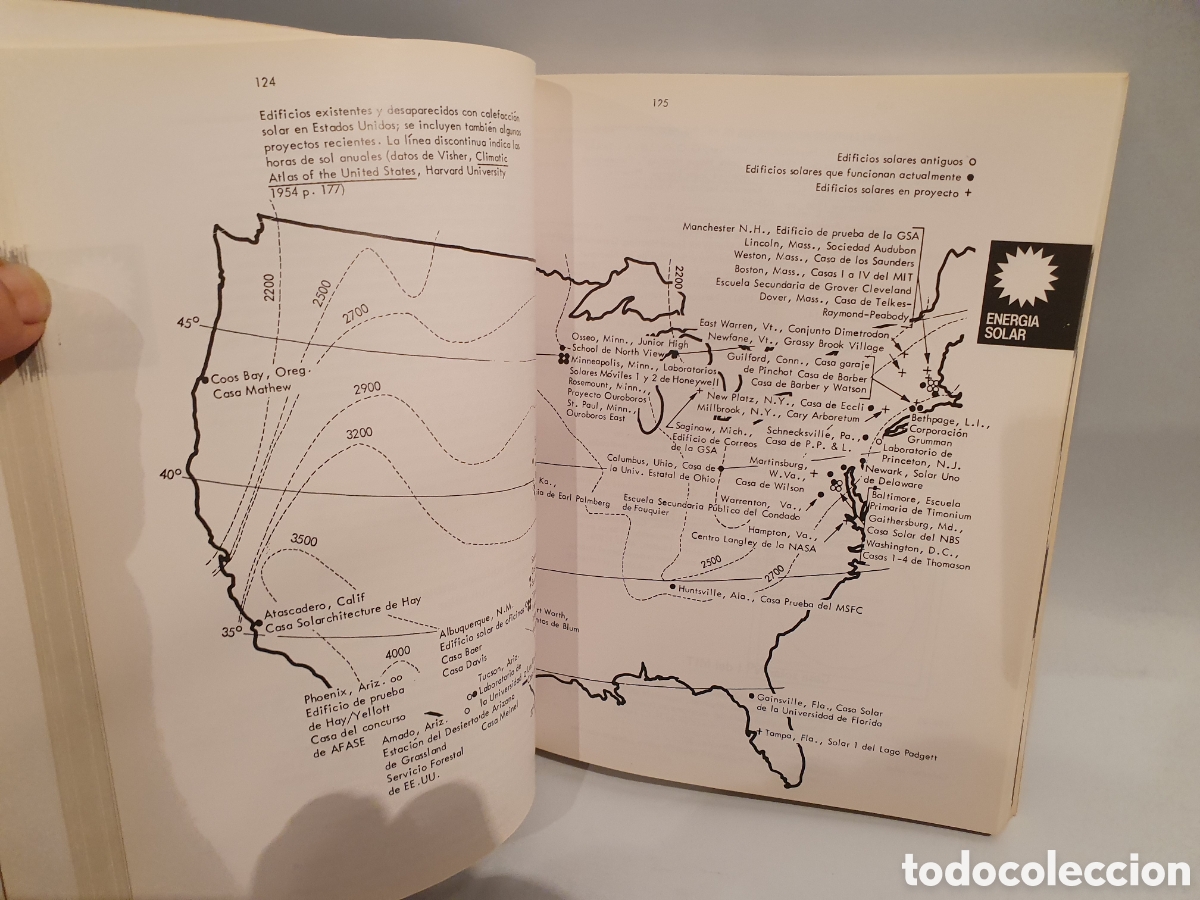 124
Edificios existentes y desaparecidos con calefacción
solar en Estados Unidos; se incluyen también algunos
proyectos recientes. La línea discontinua indica las
horas de sol anuales (datos de Visher, Climatic
Atlas of the United States, Harvard University
1954 p. 177)
2200
2500
2700
45º
Coos Bay, Oreg.
Casa Mathew
2900
3200
40º
3500
Atascadero, Calif
Casa Solarchitecture de Hay
35º
4000
Albuquerque, N.M.
Edificio solar de oficinas
Casa Baer
Casa Davis
Phoenix, Ariz.
Edificio de prueba
de Hay/Yellott
Casa del concurso
de AFASE
Tucson, Ariz.
Laboratorio de
la Universidad
de Arizona
Casa Meinel
Amado, Ariz.
Estación del Desierto
de Grassland
Servicio Forestal
de EE.UU.
125
Edificios solares antiguos
Edificios solares que funcionan actualmente
Edificios solares en proyecto +
Manchester N.H., Edificio de prueba de la GSA
Lincoln, Mass., Sociedad Audubon
Weston, Mass., Casa de los Saunders
Boston, Mass., Casas I a IV del MIT
Escuela Secundaria de Grover Cleveland
Dover, Mass., Casa de Telkes-
Raymond-Peabody
ENERGIA
SOLAR
2200
East Warren, Vt., Conjunto Dimetrodon
Newfane, Vt., Grassy Brook Village
Guilford, Conn., Casa garaje
de Pinchot Casa de Barber
Casa de Barber y Watson
Osseo, Minn., Junior High
School de North View
Minneapolis, Minn., Laboratorios
Solares Móviles 1 y 2 de Honeywell
Rosemount, Minn.,
Proyecto Ouroboros
St. Paul, Minn.,
Ouroboros East
New Platz, N.Y., Casa de Eccli
Millbrook, N.Y., Cary Arboretum
Saginaw, Mich.,
Edificio de Correos
de la GSA
Schnecksville, Pa.,
Casa de P.P. & L.
Bethpage, L.I.,
Corporación
Grumman
Laboratorio de
Princeton, N.J.
Newark, Solar Uno
de Delaware
Columbus, Ohio, Casa de
la Univ. Estatal de Ohio
Martinsburg,
W.Va.,
Casa de Wilson
Baltimore, Escuela
Primaria de Timonium
Gaithersburg, Md.,
Casa Solar del NBS
Washington, D.C.,
Casas 1-4 de Thomason
Ka.,
de Earl Palmberg
Escuela Secundaria Pública del Condado
de Fouquier
Warrenton, Va.,
Hampton, Va.,
Centro Langley de la NASA
2500
2700
Huntsville, Ala., Casa Prueba del MSFC
Worth,
de Blum
Gainsville, Fla., Casa Solar
de la Universidad de Florida
Tampa, Fla., Solar 1 del Lago Padgett
todocoleccion